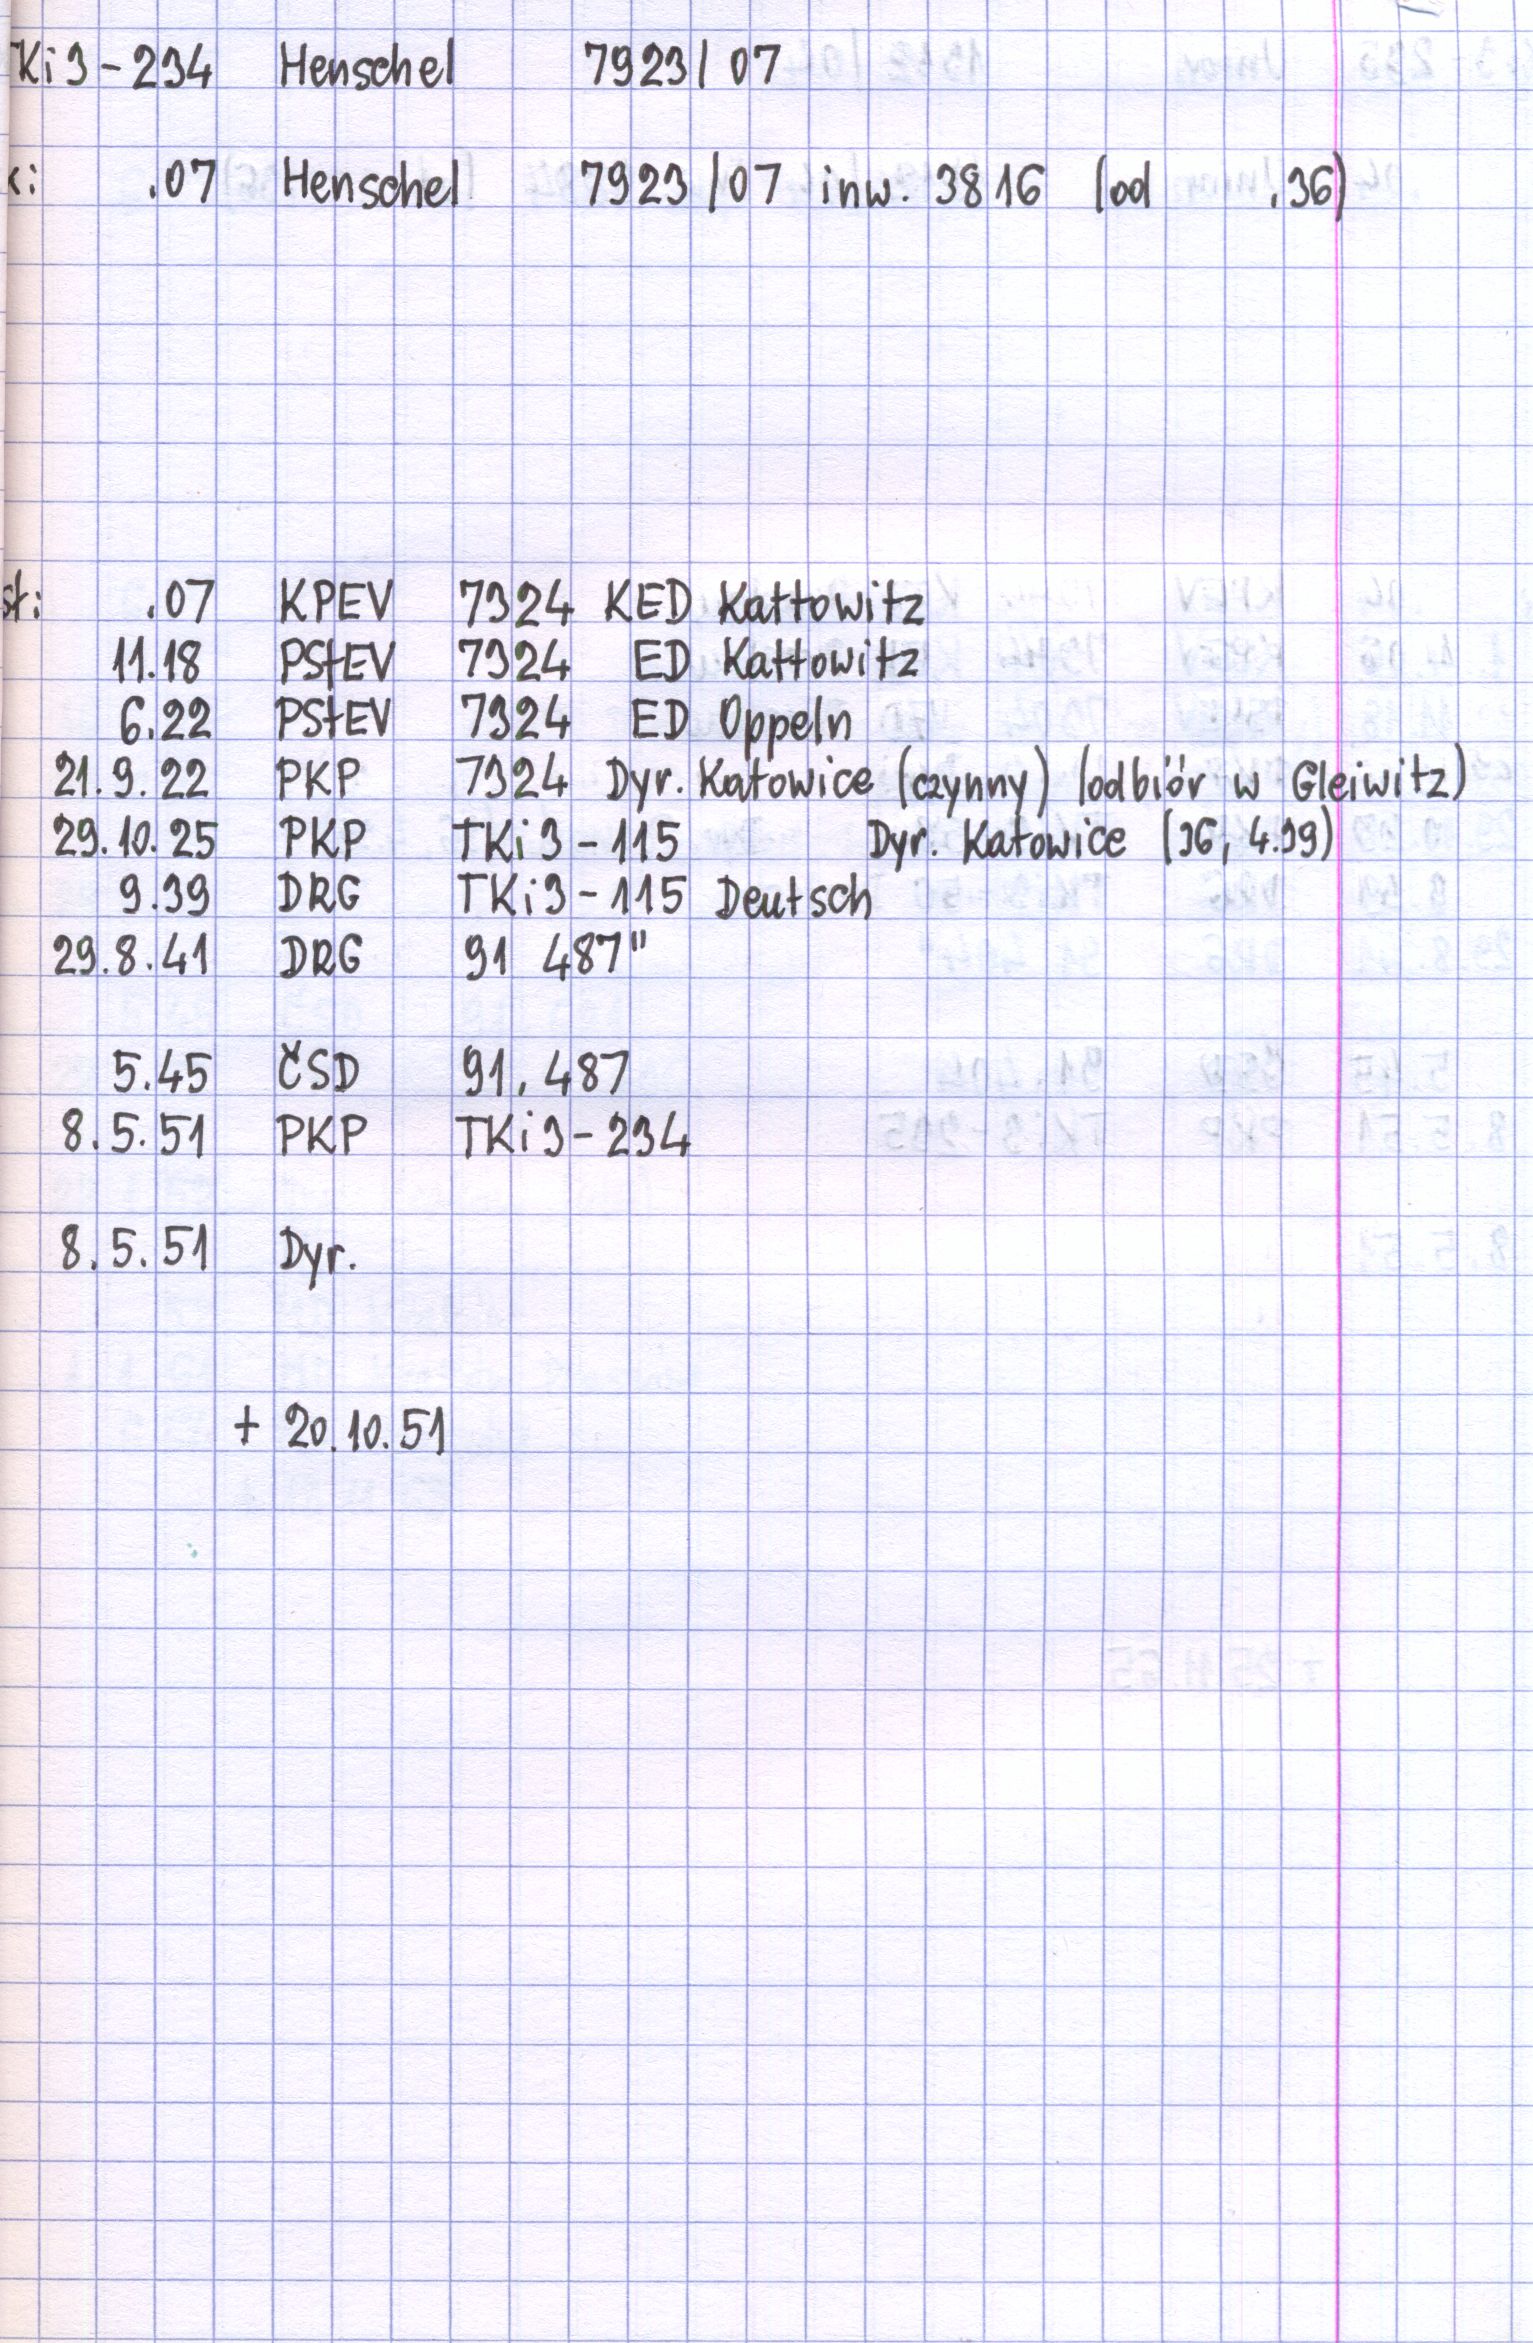 TKi3-234 Henschel 7923/07
k: .07 Henschel 7923/07 inw. 3816 (od .36)
st: .07 KPEV 7324 KED Kattowitz
11.18 PStEV 7324 ED Kattowitz
6.22 PStEV 7324 ED Oppeln
21.9.22 PKP 7324 Dyr. Katowice (czynny) (odbiór w Gleiwitz)
29.10.25 PKP TKi3-115 Dyr. Katowice (36, 4.39)
9.39 DRG TKi3-115 Deutsch
29.8.41 DRG 91 487"
5.45 ČSD 91.487
8.5.51 PKP TKi3-234
8.5.51 Dyr.
+ 20.10.51